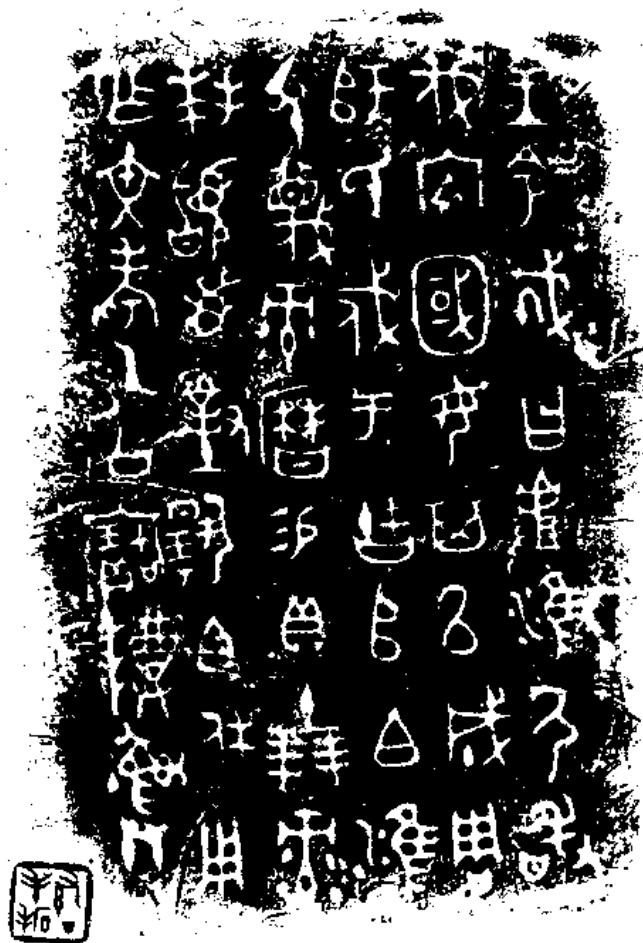 王令𢦚曰𠭯淮尸敢
伐内國女其以成周
師氏戍于古𠂤白雝
父蔑彔曆易貝十朋彔
拜𩒨首對揚白休用
乍文考乙公寶尊彝